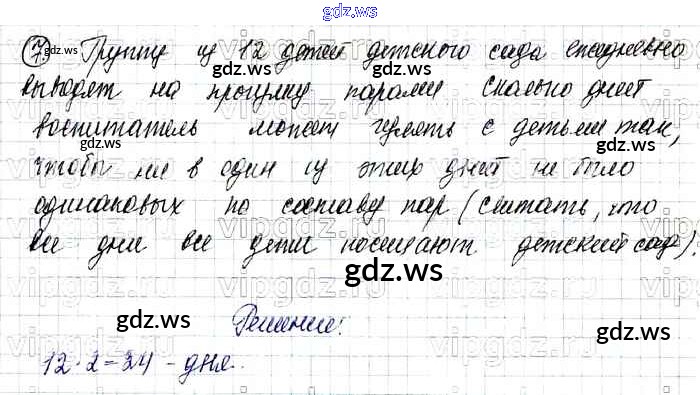 gdz.ws
7. Группу из 12 детей детского сада ежедневно
выводят на прогулку парами сколько дней
воспитатель может гулять с детьми так,
чтобы ни в один из этих дней не было
одинаковых по составу пар (считать, что
все дни все дети посещают детский сад)?
Решение:
12·2=24 - дня.